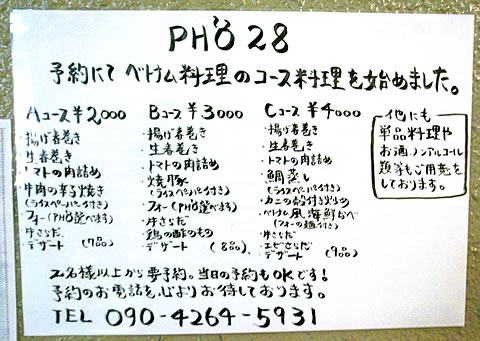 PHỞ 28
予約にて ベトナム料理のコース料理を始めました。
Aコース ¥2,000
・揚げ春巻き
・生春巻き
・トマトの肉詰め
・牛肉の辛子焼き
(ライスペーパー付き)
・フォー(PHO選べます)
・牛さらだ
・デザート (7品)
Bコース ¥3000
・揚げ春巻き
・生春巻き
・トマトの肉詰め
・焼豚
(ライスペーパー付き)
・フォー(PHO選べます)
・牛さらだ
・鶏の酢のもの
・デザート (8品)
Cコース ¥4000
・揚げ春巻き
・生春巻き
・トマトの肉詰め
・鯛蒸し
(ライスペーパー付き)
・カニの殻付き炒め
・ベトナム風海鮮なべ
(フォーの麺付き)
・牛さらだ
・エビさらだ
・デザート (9品)
他にも
単品料理や
お酒、ノンアルコール
類等もご用意を
しております。
2名様以上から要予約。当日の予約もOKです!
予約のお電話を心よりお待しております。
TEL 090-4264-5931